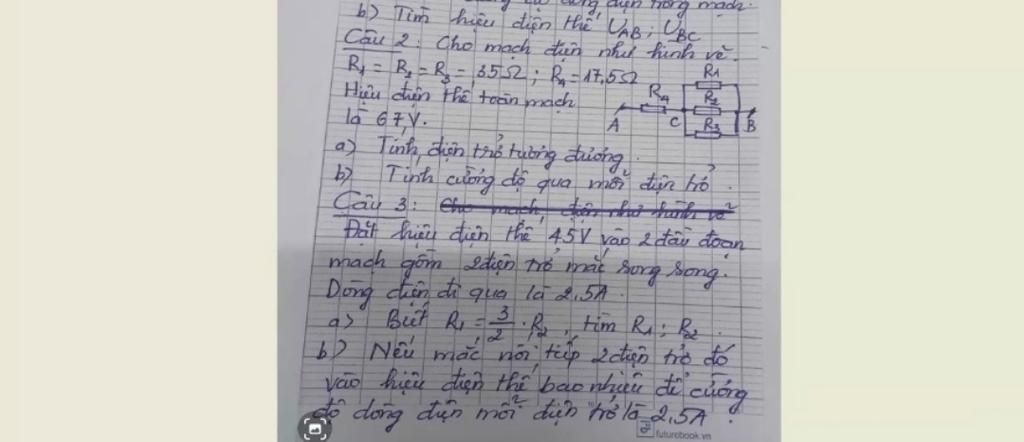 cường điện trong mạch.
b) Tìm hiệu điện thế UAB; UBC
Câu 2: Cho mạch điện như hình vẽ.
R1 = R2 = R3 = 35Ω; R4 = 17,5Ω
Hiệu điện thế toàn mạch
là 67,V.
R1
R4
R2
A
C
R3
B
a) Tính điện trở tương đương.
b) Tính cường độ qua mỗi điện trở.
Câu 3: Cho mạch điện như hình vẽ
Đặt hiệu điện thế 45V vào 2 đầu đoạn
mạch gồm 2 điện trở mắc song song.
Dòng điện đi qua là 2,5A.
a) Biết R1 = 3/2 . R2, tìm R1; R2.
b) Nếu mắc nối tiếp 2 điện trở đó
vào hiệu điện thế bao nhiêu để cường
độ dòng điện mỗi điện trở là 2,5A.
futurebook.vn